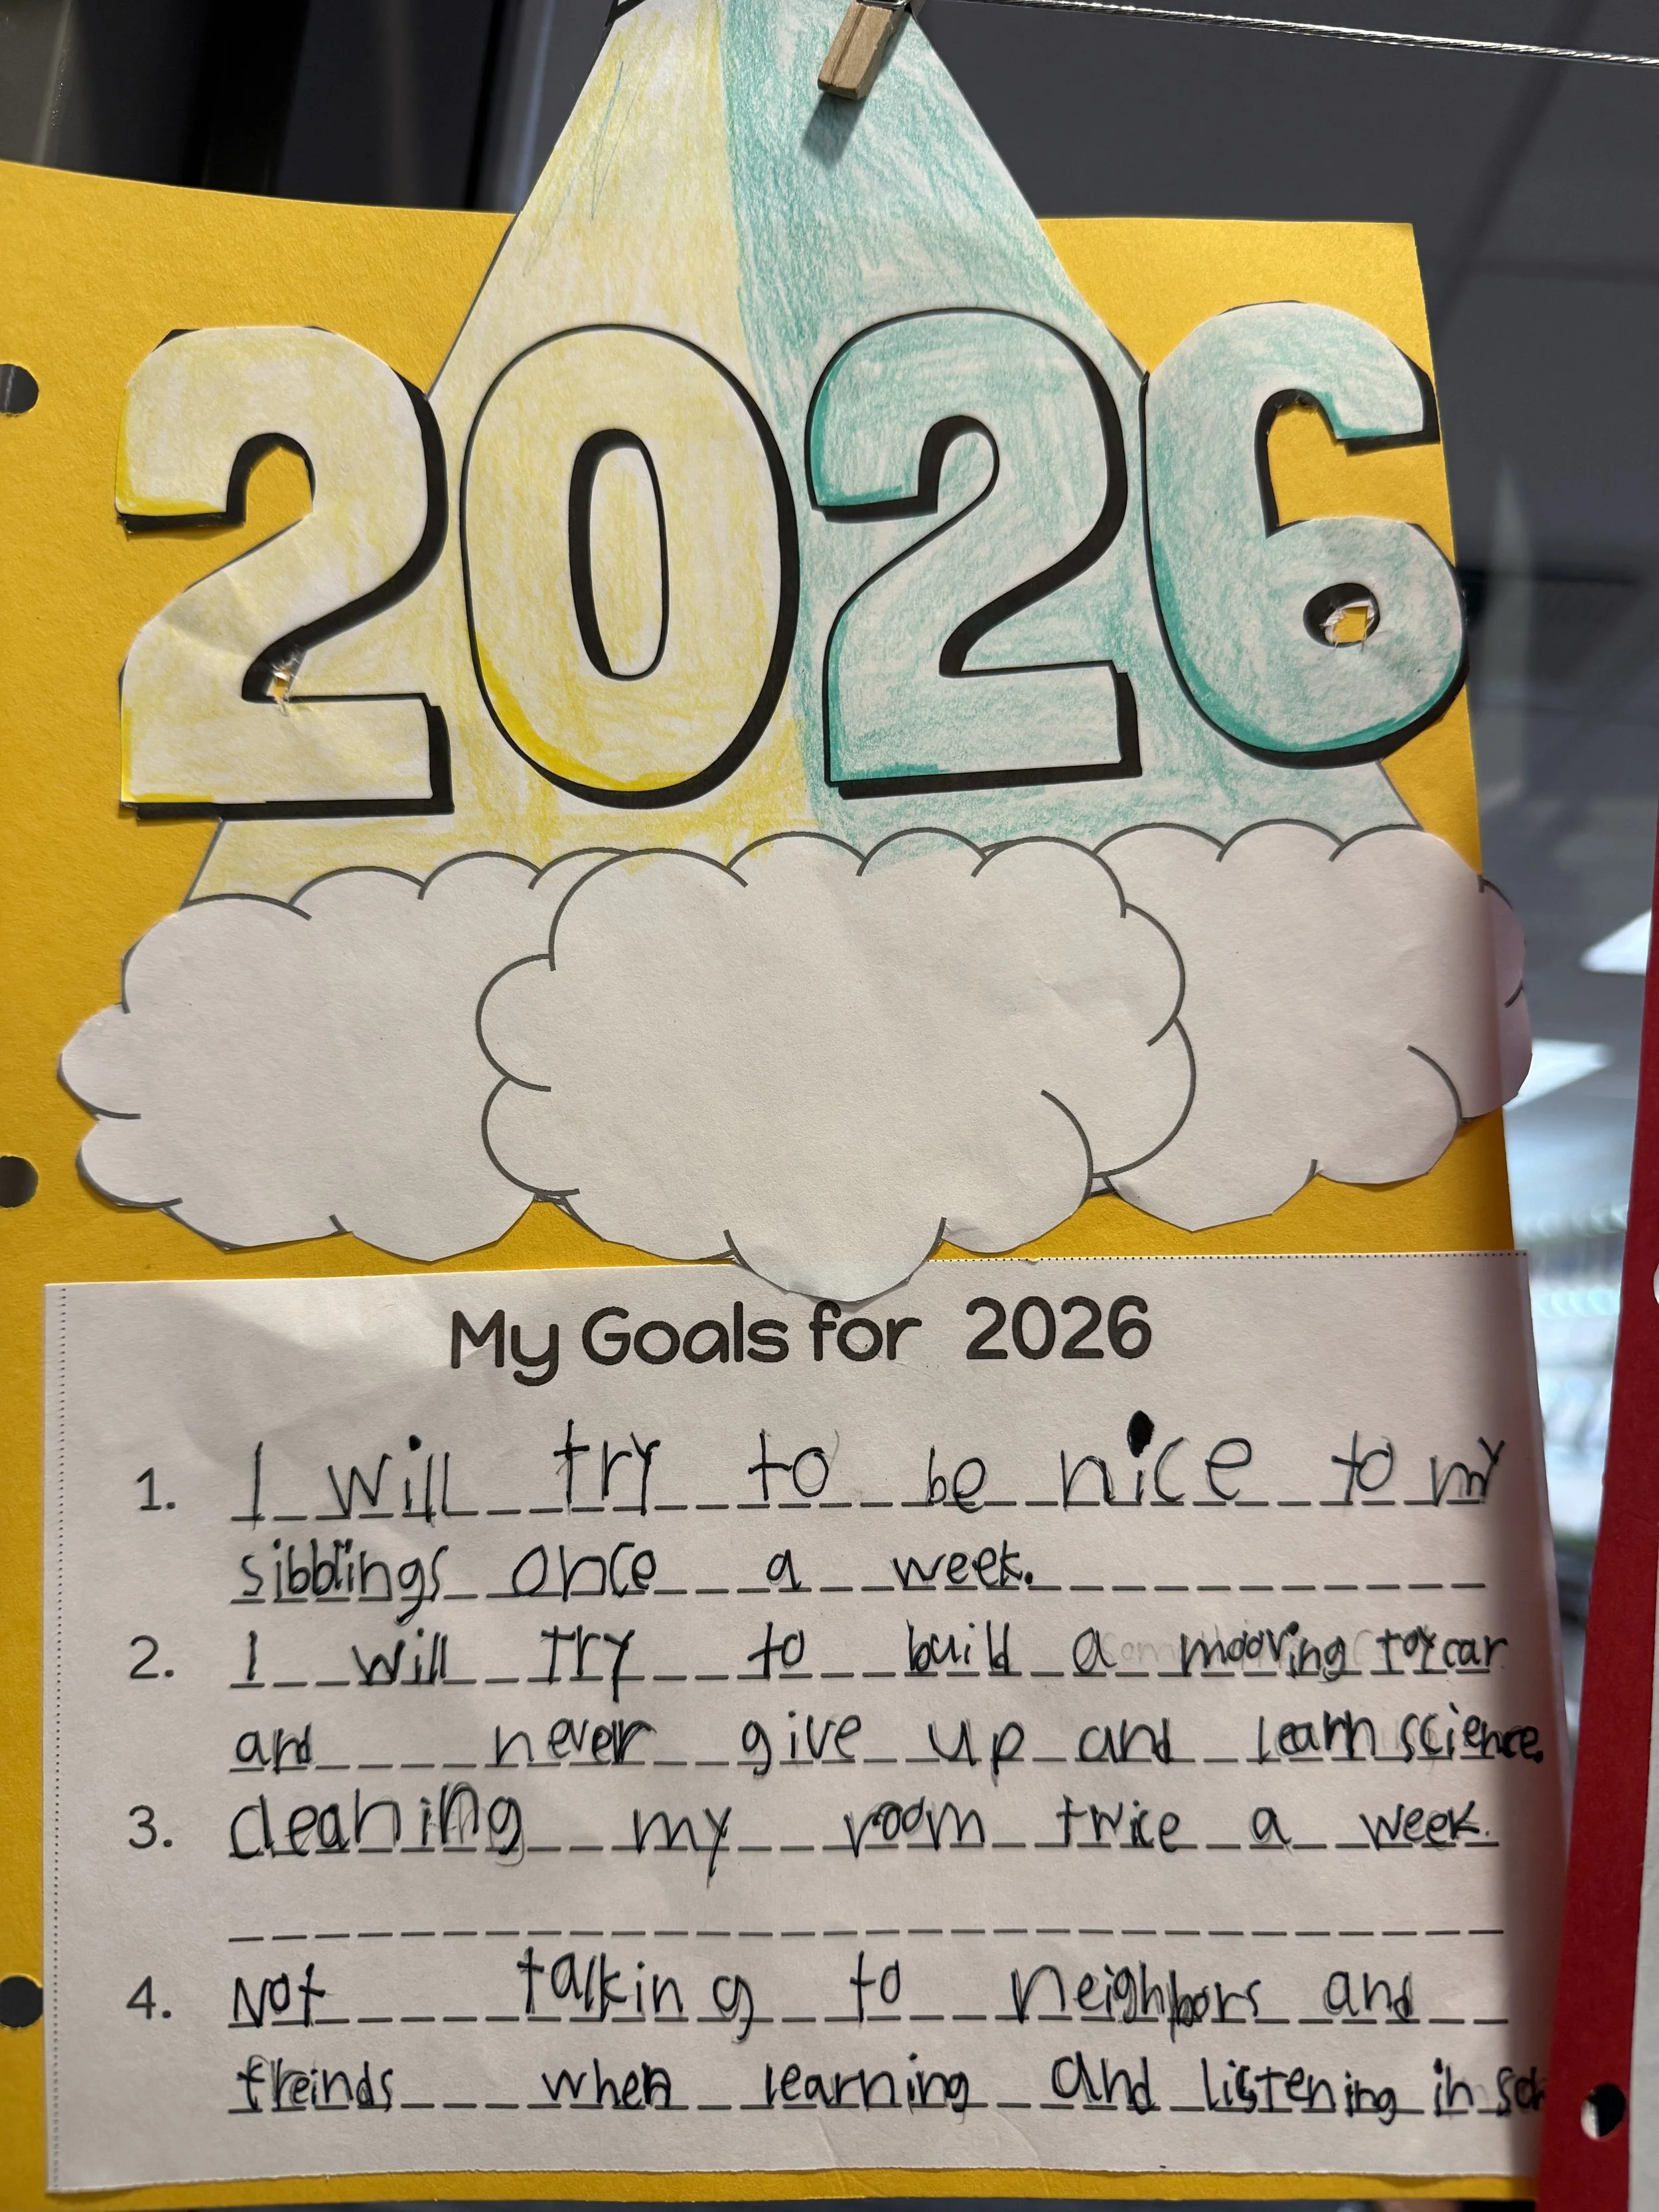 2026
My Goals for 2026
1. I will try to be nice to my
sibblings once a week.
2. I will try to build a mooving toy car
and never give up and learn science.
3. cleaning my room twice a week.
4. Not talking to neighbors and
freinds when learning and listening in sch